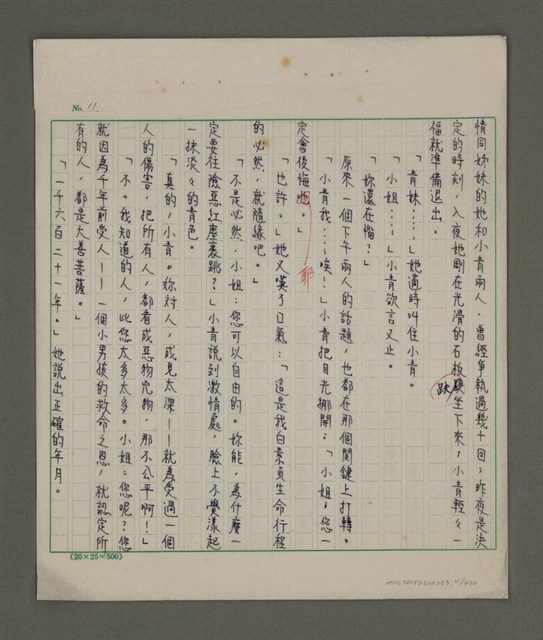 No. 11
情同姊妹的她和小青兩人，曾經爭執過幾十回；昨夜是決
定的時刻，入夜她剛在光滑的石板趺坐下來，小青輕々一
福就準備退出。
「青妹⋯⋯」她適時叫住小青。
「小姐⋯⋯」小青欲言又止。
「妳還在惱？」
原來一個下午兩人的話題，也都在那個關鍵上打轉。
「小青我⋯⋯唉！」小青把目光挪開：「小姐，您一
定會後悔地。」耶
「也許。」她又嘆了口氣：「這是我白素貞生命行程
的必然，就隨緣吧。」
「不是必然，小姐：您可以自由的。妳能，為什麼一
定要往險惡紅塵裏跳？」小青說到激情處，臉上不覺漾起
一抹淡々的青色。
「真的，小青。妳対人，成見太深——就為受過一個
人的傷害，把所有人，都看成惡物兇物，那不公平啊！」
「不。我知道的人，比您太多太多。小姐：您呢？您
就因為千年前受人——一個小男孩的救命之恩，就認定所
有的人，都是大善菩薩。」
「一千六百二十一年。」她說出正確的年月。
(20×25=500)